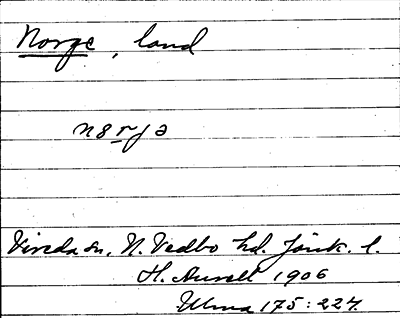 Norge, land
n8rja
Vireda sn, N. Vedbo hd. Jönk. l.
H. Aurell 1906
Ulma 175:227.